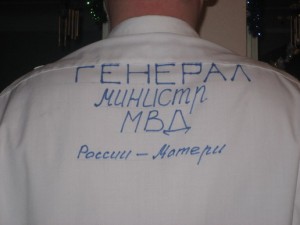 ГЕНЕРАЛ
министр
МВД
России - Мотери